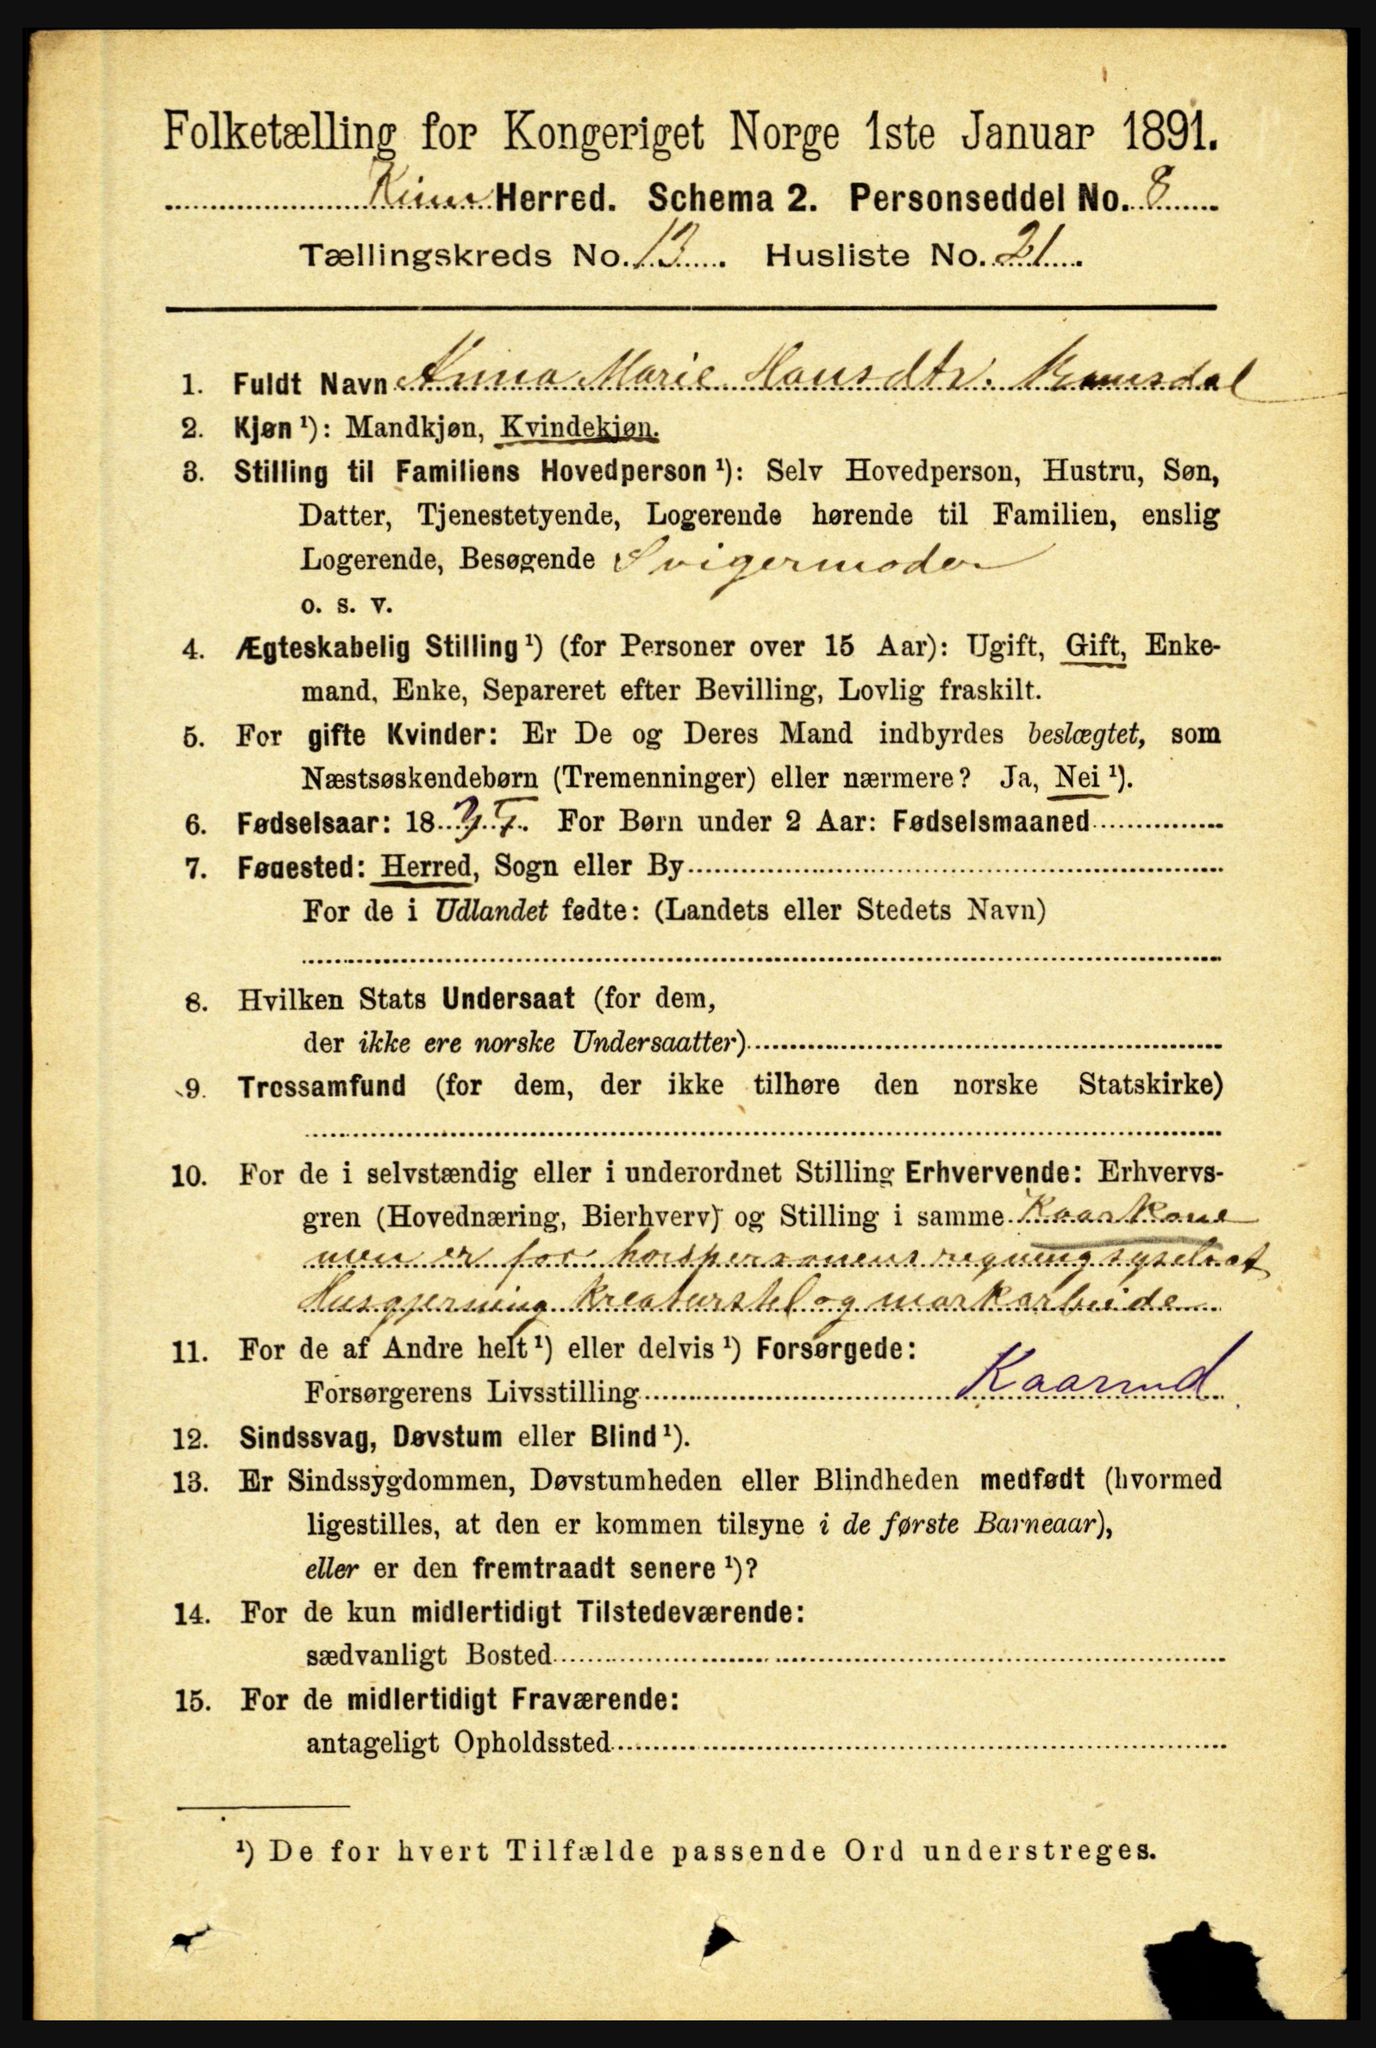 Folketælling for Kongeriget Norge 1ste Januar 1891.
Kinn Herred. Schema 2. Personseddel No. 8
Tællingskreds No. 13. Husliste No. 21.
1. Fuldt Navn Anna Marie Hansdtr.
2. Kjøn ¹): Mandkjøn, Kvindekjøn.
3. Stilling til Familiens Hovedperson ¹): Selv Hovedperson, Hustru, Søn,
Datter, Tjenestetyende, Logerende hørende til Familien, enslig
Logerende, Besøgende Svigermoder
o. s. v.
4. Ægteskabelig Stilling ¹) (for Personer over 15 Aar): Ugift, Gift, Enke-
mand, Enke, Separeret efter Bevilling, Lovlig fraskilt.
5. For gifte Kvinder: Er De og Deres Mand indbyrdes beslægtet, som
Næstsøskendebørn (Tremenninger) eller nærmere? Ja, Nei ¹).
6. Fødselsaar: 18 For Børn under 2 Aar: Fødselsmaaned
7. Fødested: Herred, Sogn eller By
For de i Udlandet fødte: (Landets eller Stedets Navn)
8. Hvilken Stats Undersaat (for dem,
der ikke ere norske Undersaatter)
9. Trossamfund (for dem, der ikke tilhøre den norske Statskirke)
10. For de i selvstændig eller i underordnet Stilling Erhvervende: Erhvervs-
gren (Hovednæring, Bierhverv) og Stilling i samme Kaarkone
men er for huspersonens regning syselsat
Husgjerning kreaturstel og markarbeide
11. For de af Andre helt ¹) eller delvis ¹) Forsørgede:
Forsørgerens Livsstilling Kaarmd
12. Sindssvag, Døvstum eller Blind ¹).
13. Er Sindssygdommen, Døvstumheden eller Blindheden medfødt (hvormed
ligestilles, at den er kommen tilsyne i de første Barneaar),
eller er den fremtraadt senere ¹)?
14. For de kun midlertidigt Tilstedeværende:
sædvanligt Bosted
15. For de midlertidigt Fraværende:
antageligt Opholdssted
¹) De for hvert Tilfælde passende Ord understreges.